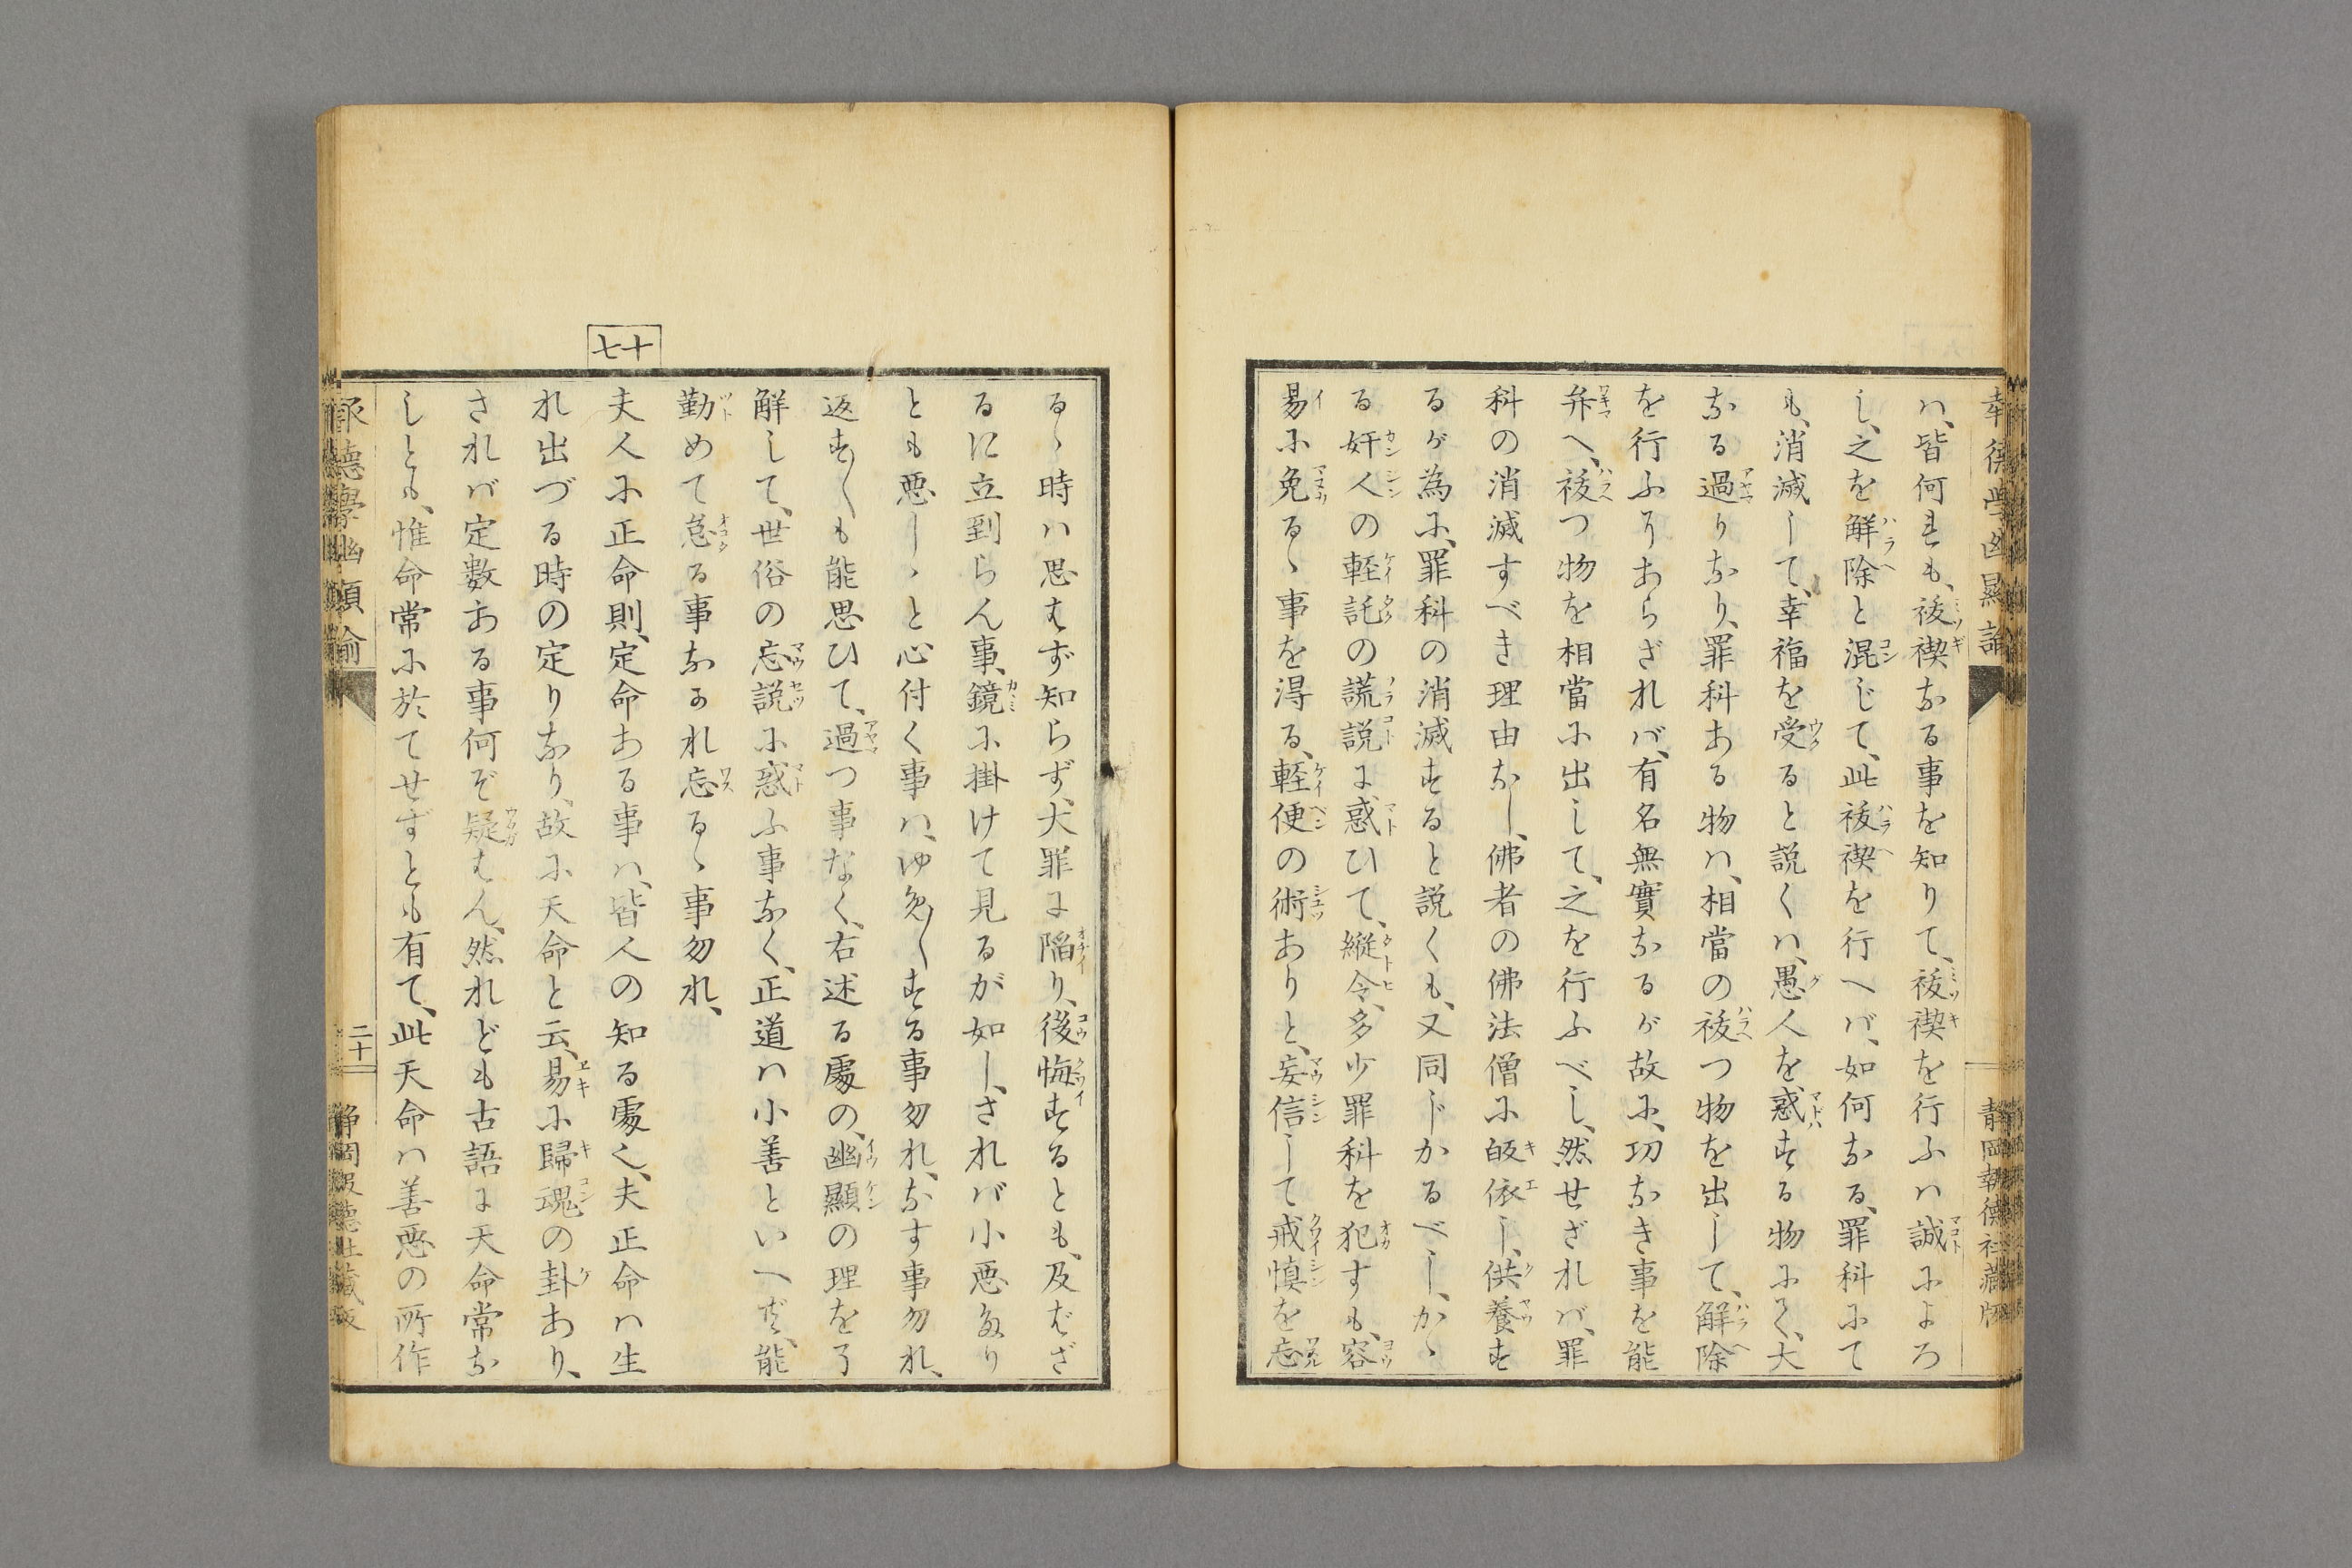 ハ、皆何れも、祓禊なる事を知りて、祓禊を行ふハ誠によろ
し、之を解除と混じて、此祓禊を行へバ、如何なる、罪科にて
も、消滅して、幸福を受ると説くハ、愚人を惑する物にて、大
なる過りなり、罪科ある物ハ、相當の祓つ物を出して、解除
を行ふにあらざれバ、有名無實なるが故に、功なき事を能
弁へ、祓つ物を相當に出して、之を行ふべし、然せざれバ、罪
科の消滅すべき理由なし、佛者の佛法僧に皈依し、供養す
るが為に、罪科の消滅すると説くも、又同じかるべし、かゝ
る奸人の軽託の謊説に惑ひて、縦令、多少罪科を犯すも、容
易に免るゝ事を得る、軽便の術ありと、妄信して戒慎を忘
るゝ時ハ思はず知らず、大罪に陥り、後悔するとも、及ばざ
るに立到らん事、鏡に掛けて見るが如し、されバ小悪なり
とも悪しゝと心付く事ハ、ゆめ〳〵する事勿れ、なす事勿れ、
返す〳〵も能思ひて、過つ事なく、右述る處の、幽顯の理を了
解して、世俗の忘説に惑ふ事なく、正道ハ小善といへど、能
勤めて怠る事なかれ忘るゝ事勿れ、
十七
夫人に正命則、定命ある事ハ、皆人の知る處く、夫正命ハ生
れ出づる時の定りなり、故に天命と云、易に歸魂の卦あり、
されバ定數ある事何ぞ疑はん、然れども古語に天命常な
しとも、惟命常に於てせずとも有て、此天命ハ善悪の所作
二十
静岡報德社藏版